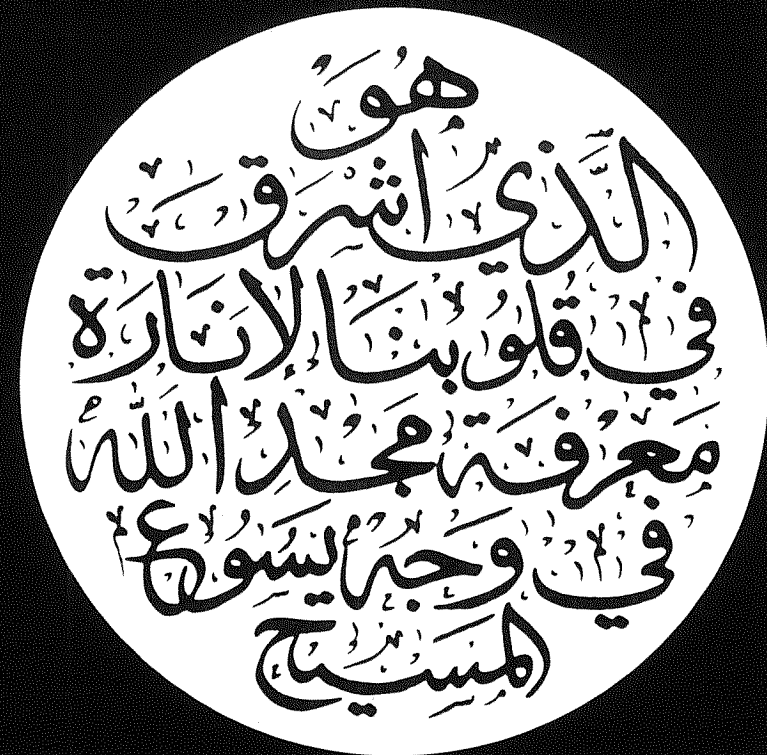 هُوَ
الَّذي اشرق
في قلوُبنَا لإنَارَة
مَعرفَة مجَدِ اللّه
في وَجهِ يَسُوع
المسَيح